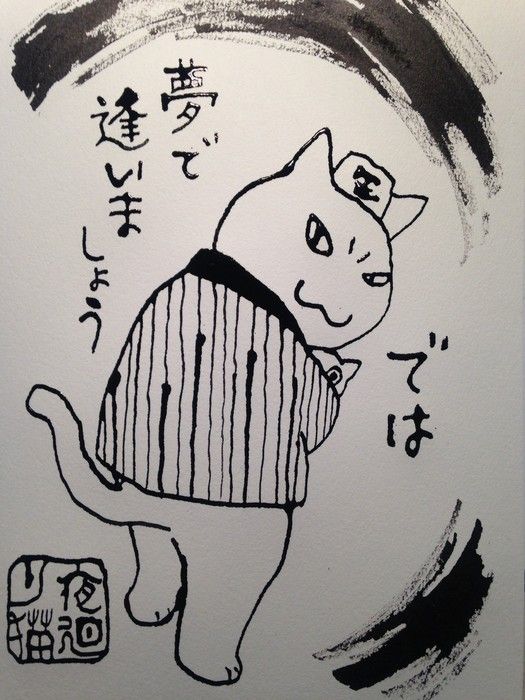 では
夢で
逢いま
しょう
夜廻
り猫